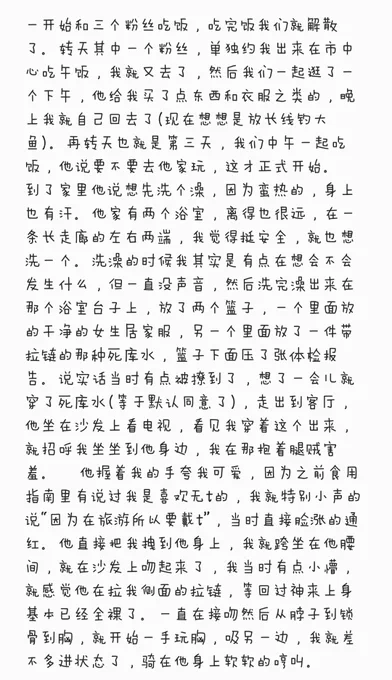 一开始和三个粉丝吃饭，吃完饭我们就解散
了。转天其中一个粉丝，单独约我出来在市中
心吃午饭，我就又去了，然后我们一起逛了一
个下午，他给我买了点东西和衣服之类的，晚
上我就自己回去了(现在想想是放长线钓大
鱼)。再转天也就是第三天，我们中午一起吃
饭，他说要不要去他家玩，这才正式开始。
到了家里他说想先洗个澡，因为蛮热的，身上
也有汗。他家有两个浴室，离得也很远，在一
条长走廊的左右两端，我觉得挺安全，就也想
洗一个。洗澡的时候我其实是有点在想会不会
发生什么，但一直没声音，然后洗完澡出来在
那个浴室台子上，放了两个篮子，一个里面放
的干净的女生居家服，另一个里面放了一件带
拉链的那种死库水，篮子下面压了张体检报
告。说实话当时有点被撩到了，想了一会儿就
穿了死库水(等于默认同意了)，走出到客厅，
他坐在沙发上看电视，看见我穿着这个出来，
就招呼我坐坐到他身边，我在那抱着腿贼害
羞。 他握着我的手夸我可爱，因为之前食用
指南里有说过我是喜欢无t的，我就特别小声的
说“因为在旅游所以要戴t”，当时直接脸涨的通
红。他直接把我拽到他身上，我就跨坐在他腰
间，就在沙发上吻起来了，我当时有点小懵，
就感觉他在拉我侧面的拉链，等回过神来上身
基本已经全裸了。一直在接吻然后从脖子到锁
骨到胸，就开始一手玩胸，吸另一边，我就差
不多进状态了，骑在他身上软软的哼叫。